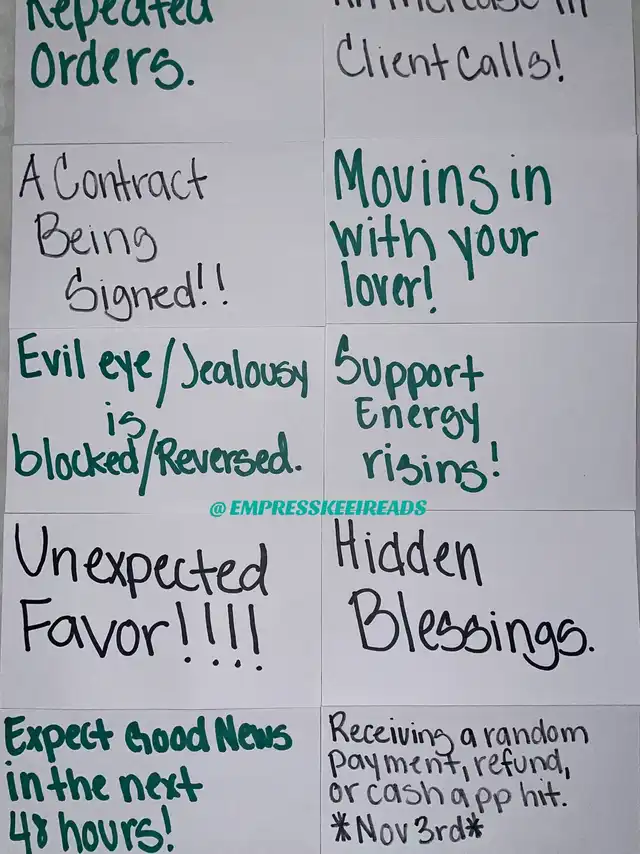 Repeated
Orders.
An Increase in
Client Calls!
A Contract
Being
Signed!!
Moving in
with your
lover!
Evil eye/Jealousy
is
blocked/Reversed.
Support
Energy
rising!
@ EMPRESSKEEIREADS
Unexpected
Favor!!!!
Hidden
Blessings.
Expect Good News
in the next
48 hours!
Receiving a random
payment, refund,
or cash app hit.
*Nov 3rd*